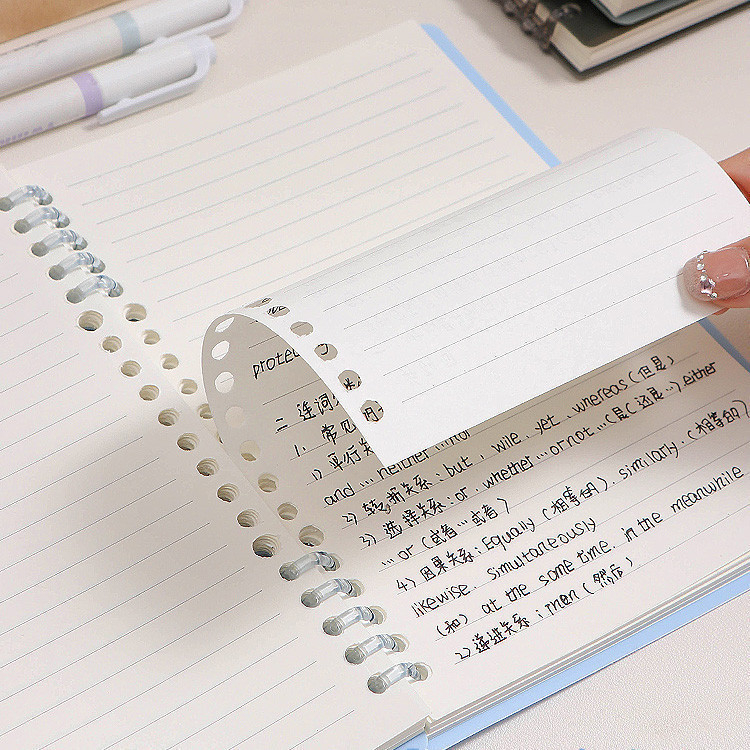 protec
二、连词
1. 常见
1) 平行关
and ... neither...nor
2) 转折关系：but , wile , yet , whereas (但是)
3) 选择关系：or , whether ... or not ... (是(还是..) either
...or (或者...或者)
4) 因果关系：Equally (相等的) , similarly. (相等的)
likewise , simultaneously
(和) at the same time, in the meanwhile.
2) 递进关系：then (然后)